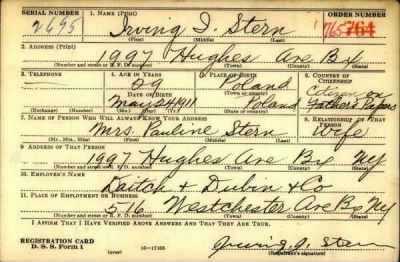 SERIAL NUMBER 1. NAME (Print) ORDER NUMBER
2695 Irving I. Stern 765 764
(First) (Middle) (Last)
2. ADDRESS (Print)
1997 Hughes Ave Bx
(Number and street or R. F. D. number) (Town) (County) (State)
3. TELEPHONE 4. AGE IN YEARS 5. PLACE OF BIRTH 6. COUNTRY OF CITIZENSHIP
29 Poland Citizen on
DATE OF BIRTH (Town or county)
May 24 1911 Poland Fathers Papers
(Exchange) (Number) (Mo.) (Day) (Yr.) (State or country)
7. NAME OF PERSON WHO WILL ALWAYS KNOW YOUR ADDRESS 8. RELATIONSHIP OF THAT PERSON
Mrs. Pauline Stern Wife
(Mr., Mrs., Miss) (First) (Middle) (Last)
9. ADDRESS OF THAT PERSON
1997 Hughes Ave Bx NY
(Number and street or R. F. D. number) (Town) (County) (State)
10. EMPLOYER'S NAME
Daitch + Dubin + Co
11. PLACE OF EMPLOYMENT OR BUSINESS
576 Westchester Ave Bx NY
(Number and street or R. F. D. number) (Town) (County) (State)
I AFFIRM THAT I HAVE VERIFIED ABOVE ANSWERS AND THAT THEY ARE TRUE.
REGISTRATION CARD
D. S. S. Form 1 (over) 16—17105 Irving I. Stern
(Registrant's signature)